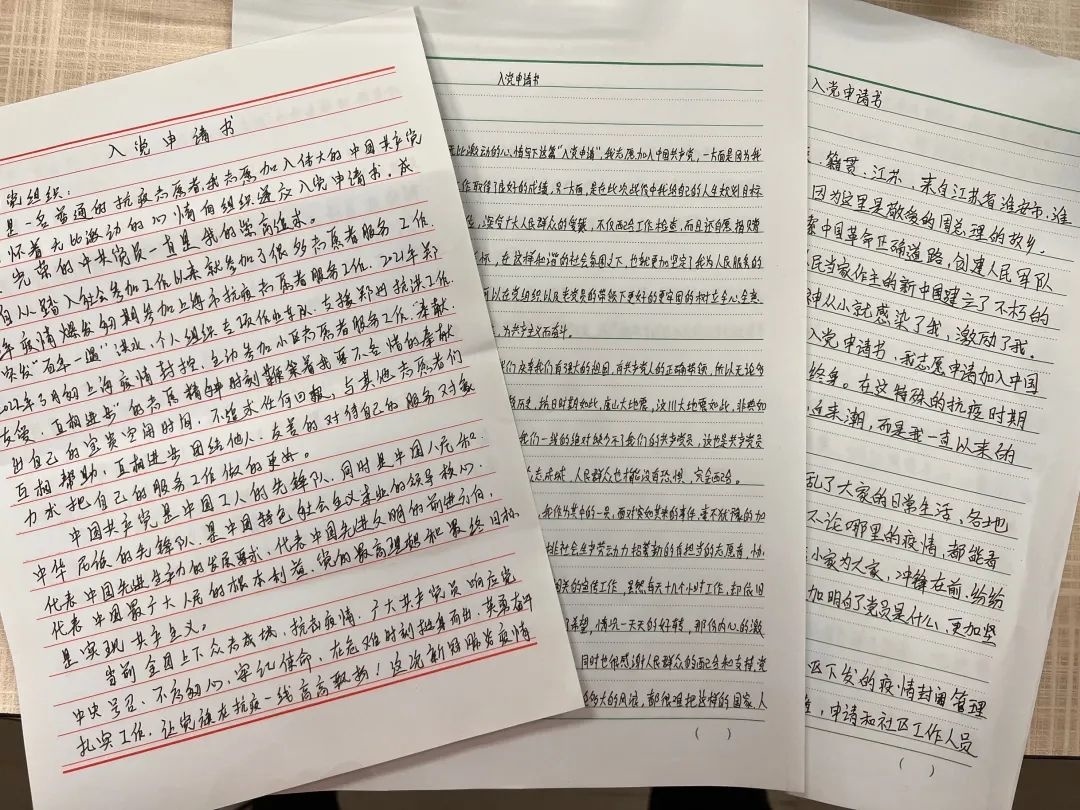 入党申请书
党组织:
是一名普通的抗疫志愿者,我志愿加入伟大的中国共产党
怀着无比激动的心情向组织递交入党申请书。成
光荣的中共党员一直是我的崇高追求。
自从踏入社会参加工作以来就参加了很多志愿者服务工作。
年疫情爆发初期参加上海市抗疫志愿者服务工作。2021年郑
突发"百年一遇"洪水,个人组织专项作业车队,支援郑州抗洪工作。
2022年3月初上海疫情封控,主动参加小区志愿者服务工作。"奉献.
友爱、互相进步"的志愿精神时刻鞭策着我要不吝惜的奉献
出自己的宝贵空闲时间,不追求任何回报,与其他志愿者们
互相帮助,互相进步团结他人,友善的对待自己的服务对象
力求把自己的服务工作做的更好。
中国共产党是中国工人的先锋队,同时是中国人民和
中华民族的先锋队,是中国特色社会主义事业的领导核心.
代表中国先进生产力的发展要求,代表中国先进文明的前进方向,
代表中国最广大人民的根本利益,党的最高理想和最终目标
是实现共产主义。
当前全国上下众志成城,抗击疫情,广大共产党员响应党
中央号召,不忘初心,牢记使命,在危难时刻挺身而出,英勇奋斗
扎实工作,让党旗在抗疫一线高高飘扬!这说新冠肺炎疫情
入党申请书
无比激动的心情写下这篇"入党申请",我志愿加入中国共产党,一方面是因为我
工作取得了良好的成绩,另一方面,是在此次战疫中我给自己的人生规划目标
,深受广大人民群众的爱戴,不仅配合工作检查,而且还自愿捐赠
标,在这样和谐的社会氛围之下,也就更加坚定了我为人民服务的
可以在党组织以及老党员的带领下更好的更牢固的树立全心全意
,为共产主义而奋斗。
我们庆幸我们有强大的祖国,有共产党人的正确带领,所以无论多
历史,抗日时期如此,唐山大地震,汶川大地震如此,非典如
我们一线的绝对缺少不了我们的共产党员,这也是共产党员
众志成城,人民群众也都没有恐惧,完全配合。
我作为其中的一员,面对突如其来的事件,毫不犹豫的加
社会生产劳动力招募新的有担当的志愿者,协
相关的宣传工作,虽然每天十几个小时工作,却依旧
了希望,情况一天天的好转,那份内心的激
同时也很感谢人民群众的配合和支持,党
多大的风浪,都很难把这样的国家、人
( )
入党申请书
,籍贯,江苏,来自江苏省淮安市,淮
因为这里是敬爱的周总理的故乡。
索中国革命正确道路,创建人民军队
民当家作主的新中国建立了不朽的
神从小就感染了我,激励了我。
入党申请书,我志愿申请加入中国
终身。在这特殊的抗疫时期
心来潮,而是我一直以来的
乱了大家的日常生活、各地
不论哪里的疫情,都能看
小家为大家,冲锋在前,纷纷
加明白了党员是什么,更加坚
区下发的疫情封闭管理
,申请和社区工作人员
( )